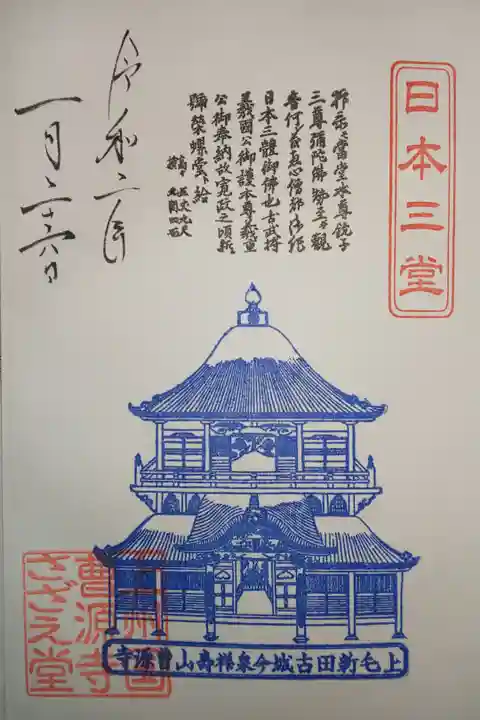 日本三堂
當堂本尊
三尊彌陀佛勢至觀
音何恵心僧都御作
日本三體御佛也古武将
義國公御護本尊義重
公御奉納故寛政之頃新
號榮螺堂ト給
高サ五丈九尺
横 九間四面
令和二年
一月二十六日
上毛新田古城今泉祥壽山曹源寺
州
曹源寺
さざえ堂